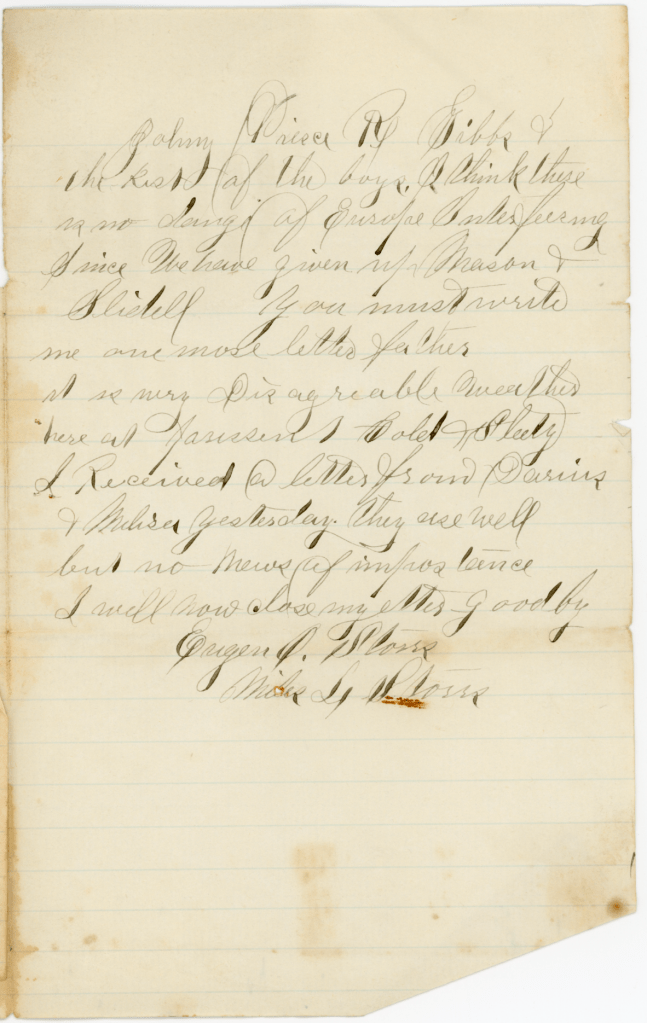 Johny Price R Gibbs &
the Rest of the boys. I think there
is no dangr of Europe Interfeering
Since We have given up Mason &
Slidell You must write
me one more letter father
it is very Disagreable Weather
here at Cold & Sleety
I Received a letter from Darius
& Melisa yesterday. they are well
but no News of importance
I will now close my letter good by
Eugen Storrs
Miles L Storrs